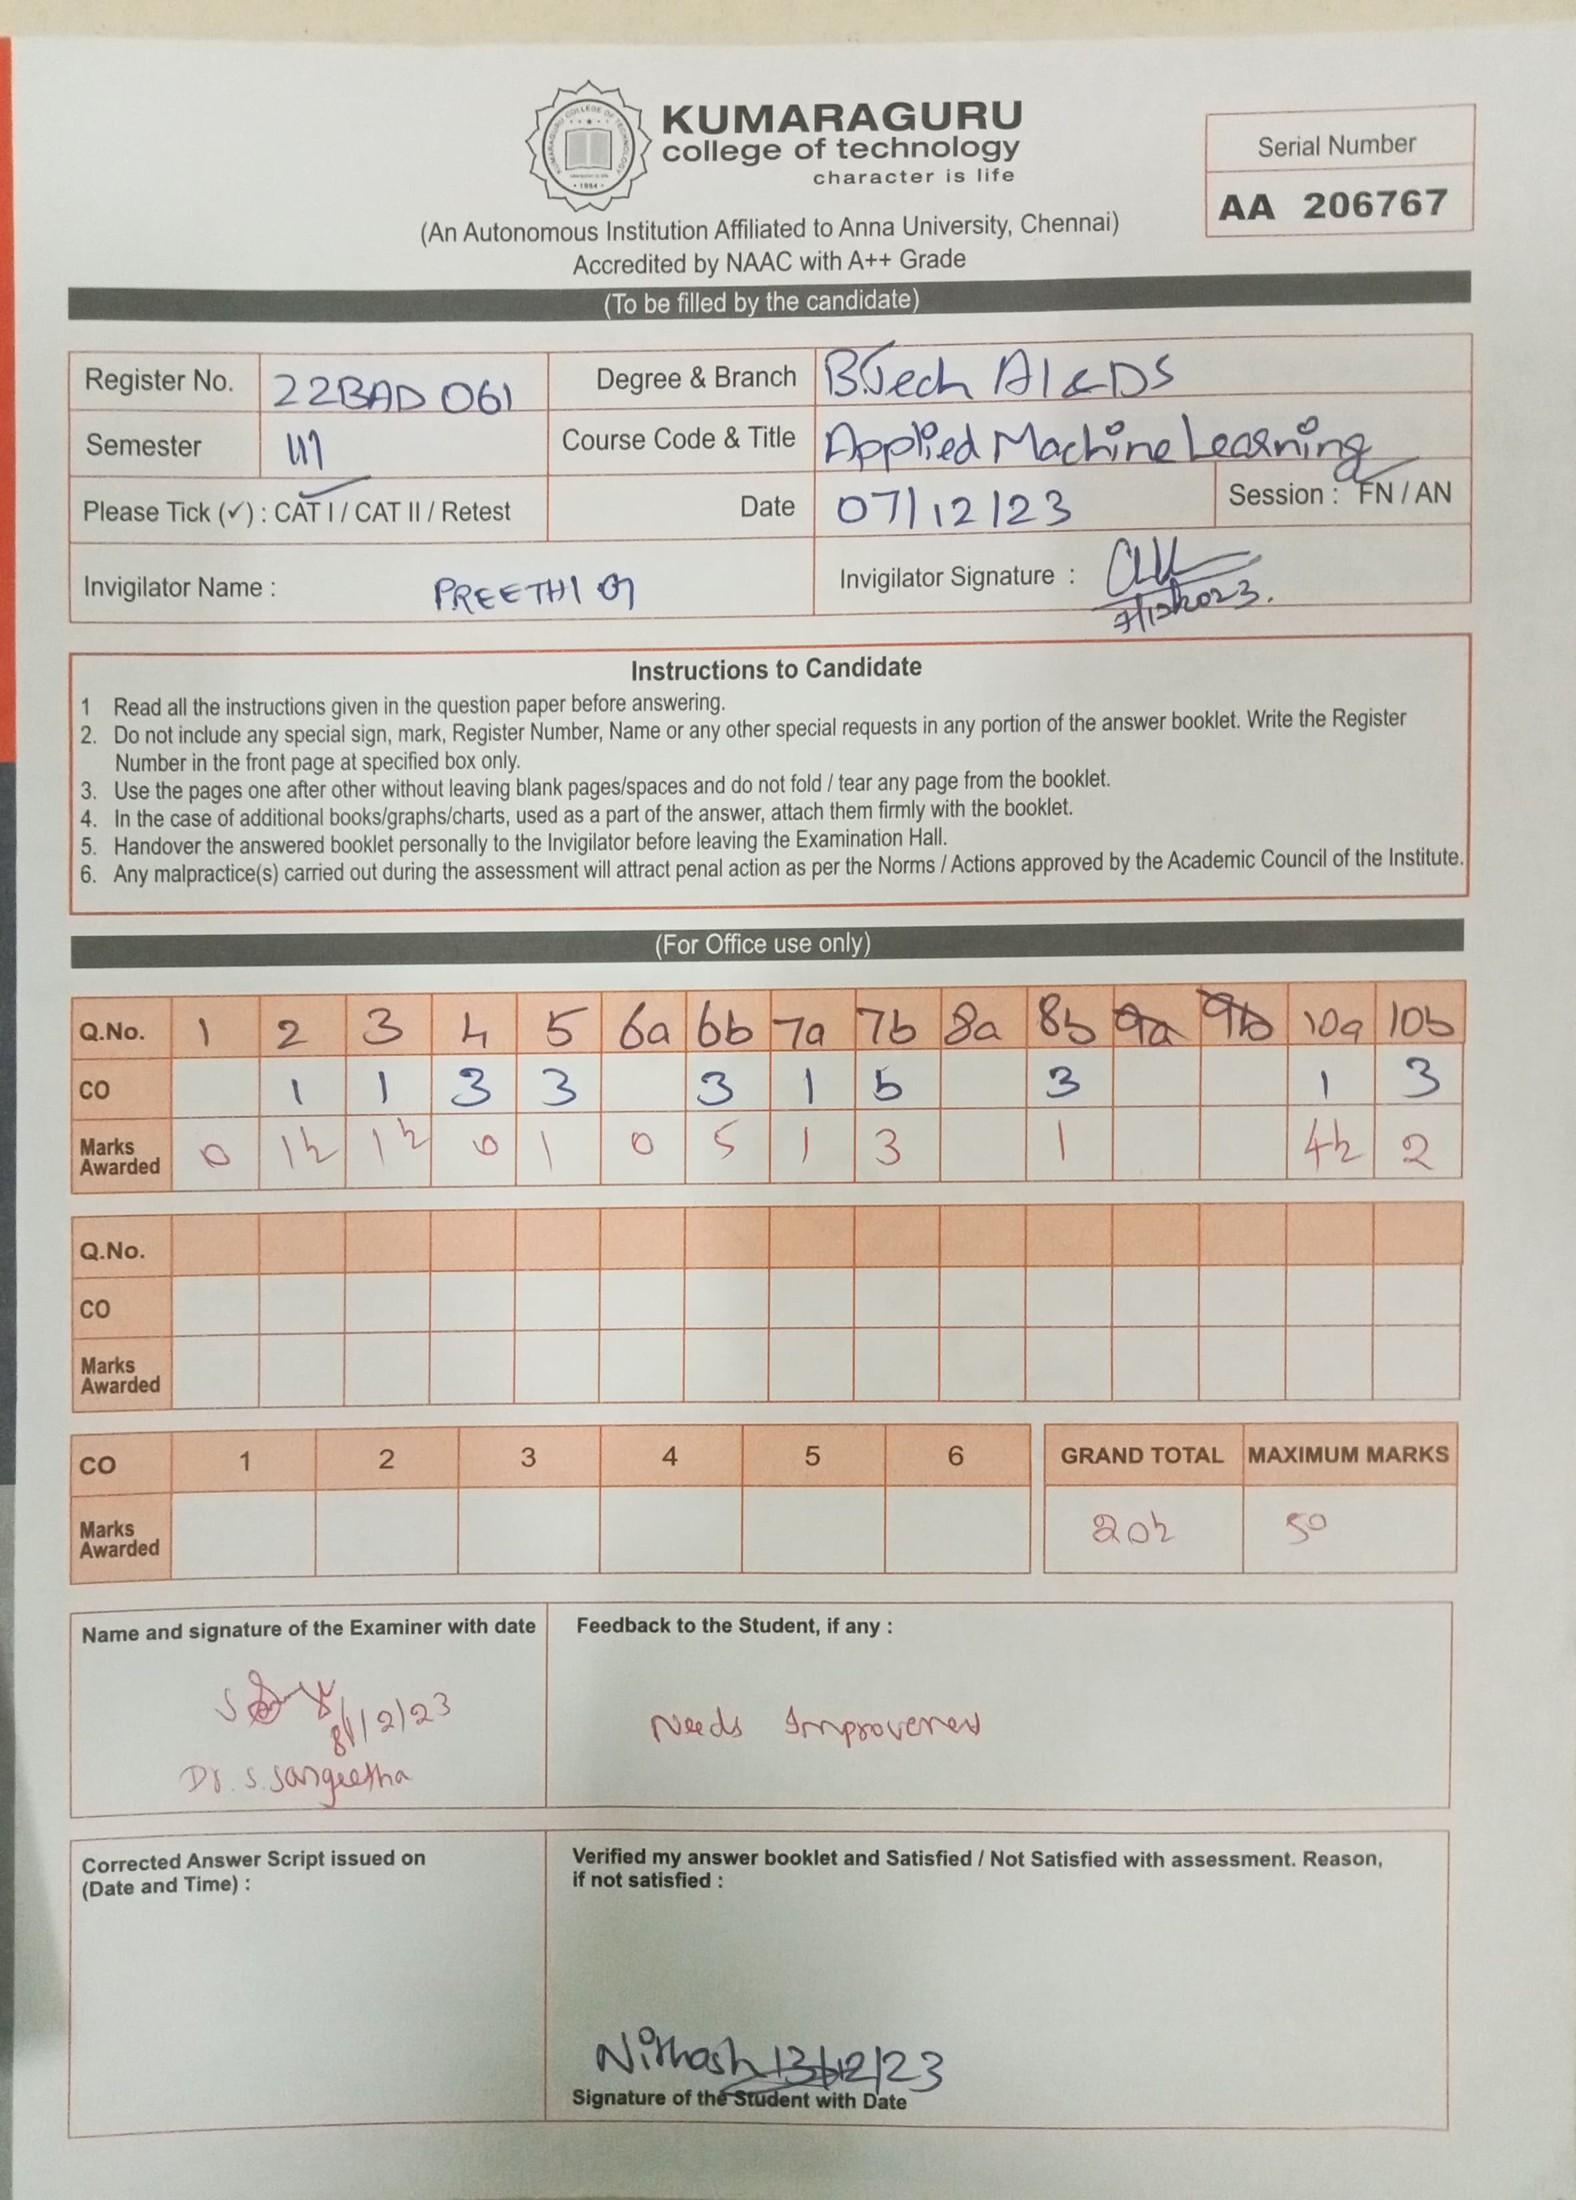 KUMARAGURU
college of technology
character is life
KUMARAGURU COLLEGE OF TECHNOLOGY
• 1984 •
Serial Number
AA 206767
(An Autonomous Institution Affiliated to Anna University, Chennai)
Accredited by NAAC with A++ Grade
(To be filled by the candidate)
Register No. 22BAD061 Degree & Branch B.Tech AI&DS
Semester III Course Code & Title Applied Machine Learning
Please Tick (✓) : CAT I / CAT II / Retest Date 07/12/23 Session : FN / AN
Invigilator Name : PREETHI Invigilator Signature :
7/12/2023.
Instructions to Candidate
1 Read all the instructions given in the question paper before answering.
2. Do not include any special sign, mark, Register Number, Name or any other special requests in any portion of the answer booklet. Write the Register
Number in the front page at specified box only.
3. Use the pages one after other without leaving blank pages/spaces and do not fold / tear any page from the booklet.
4. In the case of additional books/graphs/charts, used as a part of the answer, attach them firmly with the booklet.
5. Handover the answered booklet personally to the Invigilator before leaving the Examination Hall.
6. Any malpractice(s) carried out during the assessment will attract penal action as per the Norms / Actions approved by the Academic Council of the Institute.
(For Office use only)
Q.No. 1 2 3 4 5 6a 6b 7a 7b 8a 8b 9a 9b 10a 10b
CO 1 1 3 3 3 1 5 3 1 3
Marks
Awarded 0 1½ 1½ 0 1 0 5 1 3 1 4½ 2
Q.No.
CO
Marks
Awarded
CO 1 2 3 4 5 6 GRAND TOTAL MAXIMUM MARKS
Marks
Awarded 20½ 50
Name and signature of the Examiner with date
8/12/23
Dr. S. Sangeetha
Feedback to the Student, if any :
Needs Improvement
Corrected Answer Script issued on
(Date and Time) :
Verified my answer booklet and Satisfied / Not Satisfied with assessment. Reason,
if not satisfied :
Nithash 13/12/23
Signature of the Student with Date